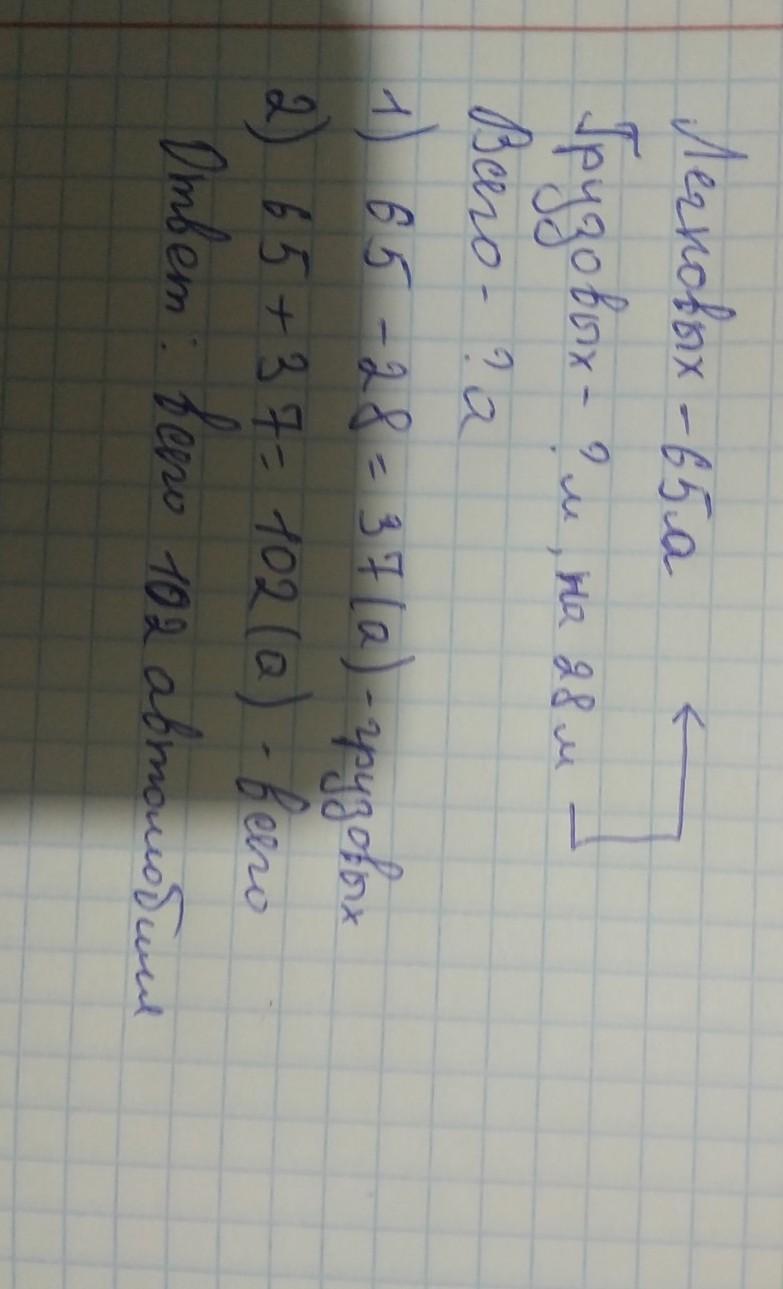 Легковых - 65 а
Грузовых - ? м, на 28 м
Всего - ? а
1) 65 - 28 = 37 (а) - грузовых
2) 65 + 37 = 102 (а) - всего
Ответ: всего 102 автомобиля